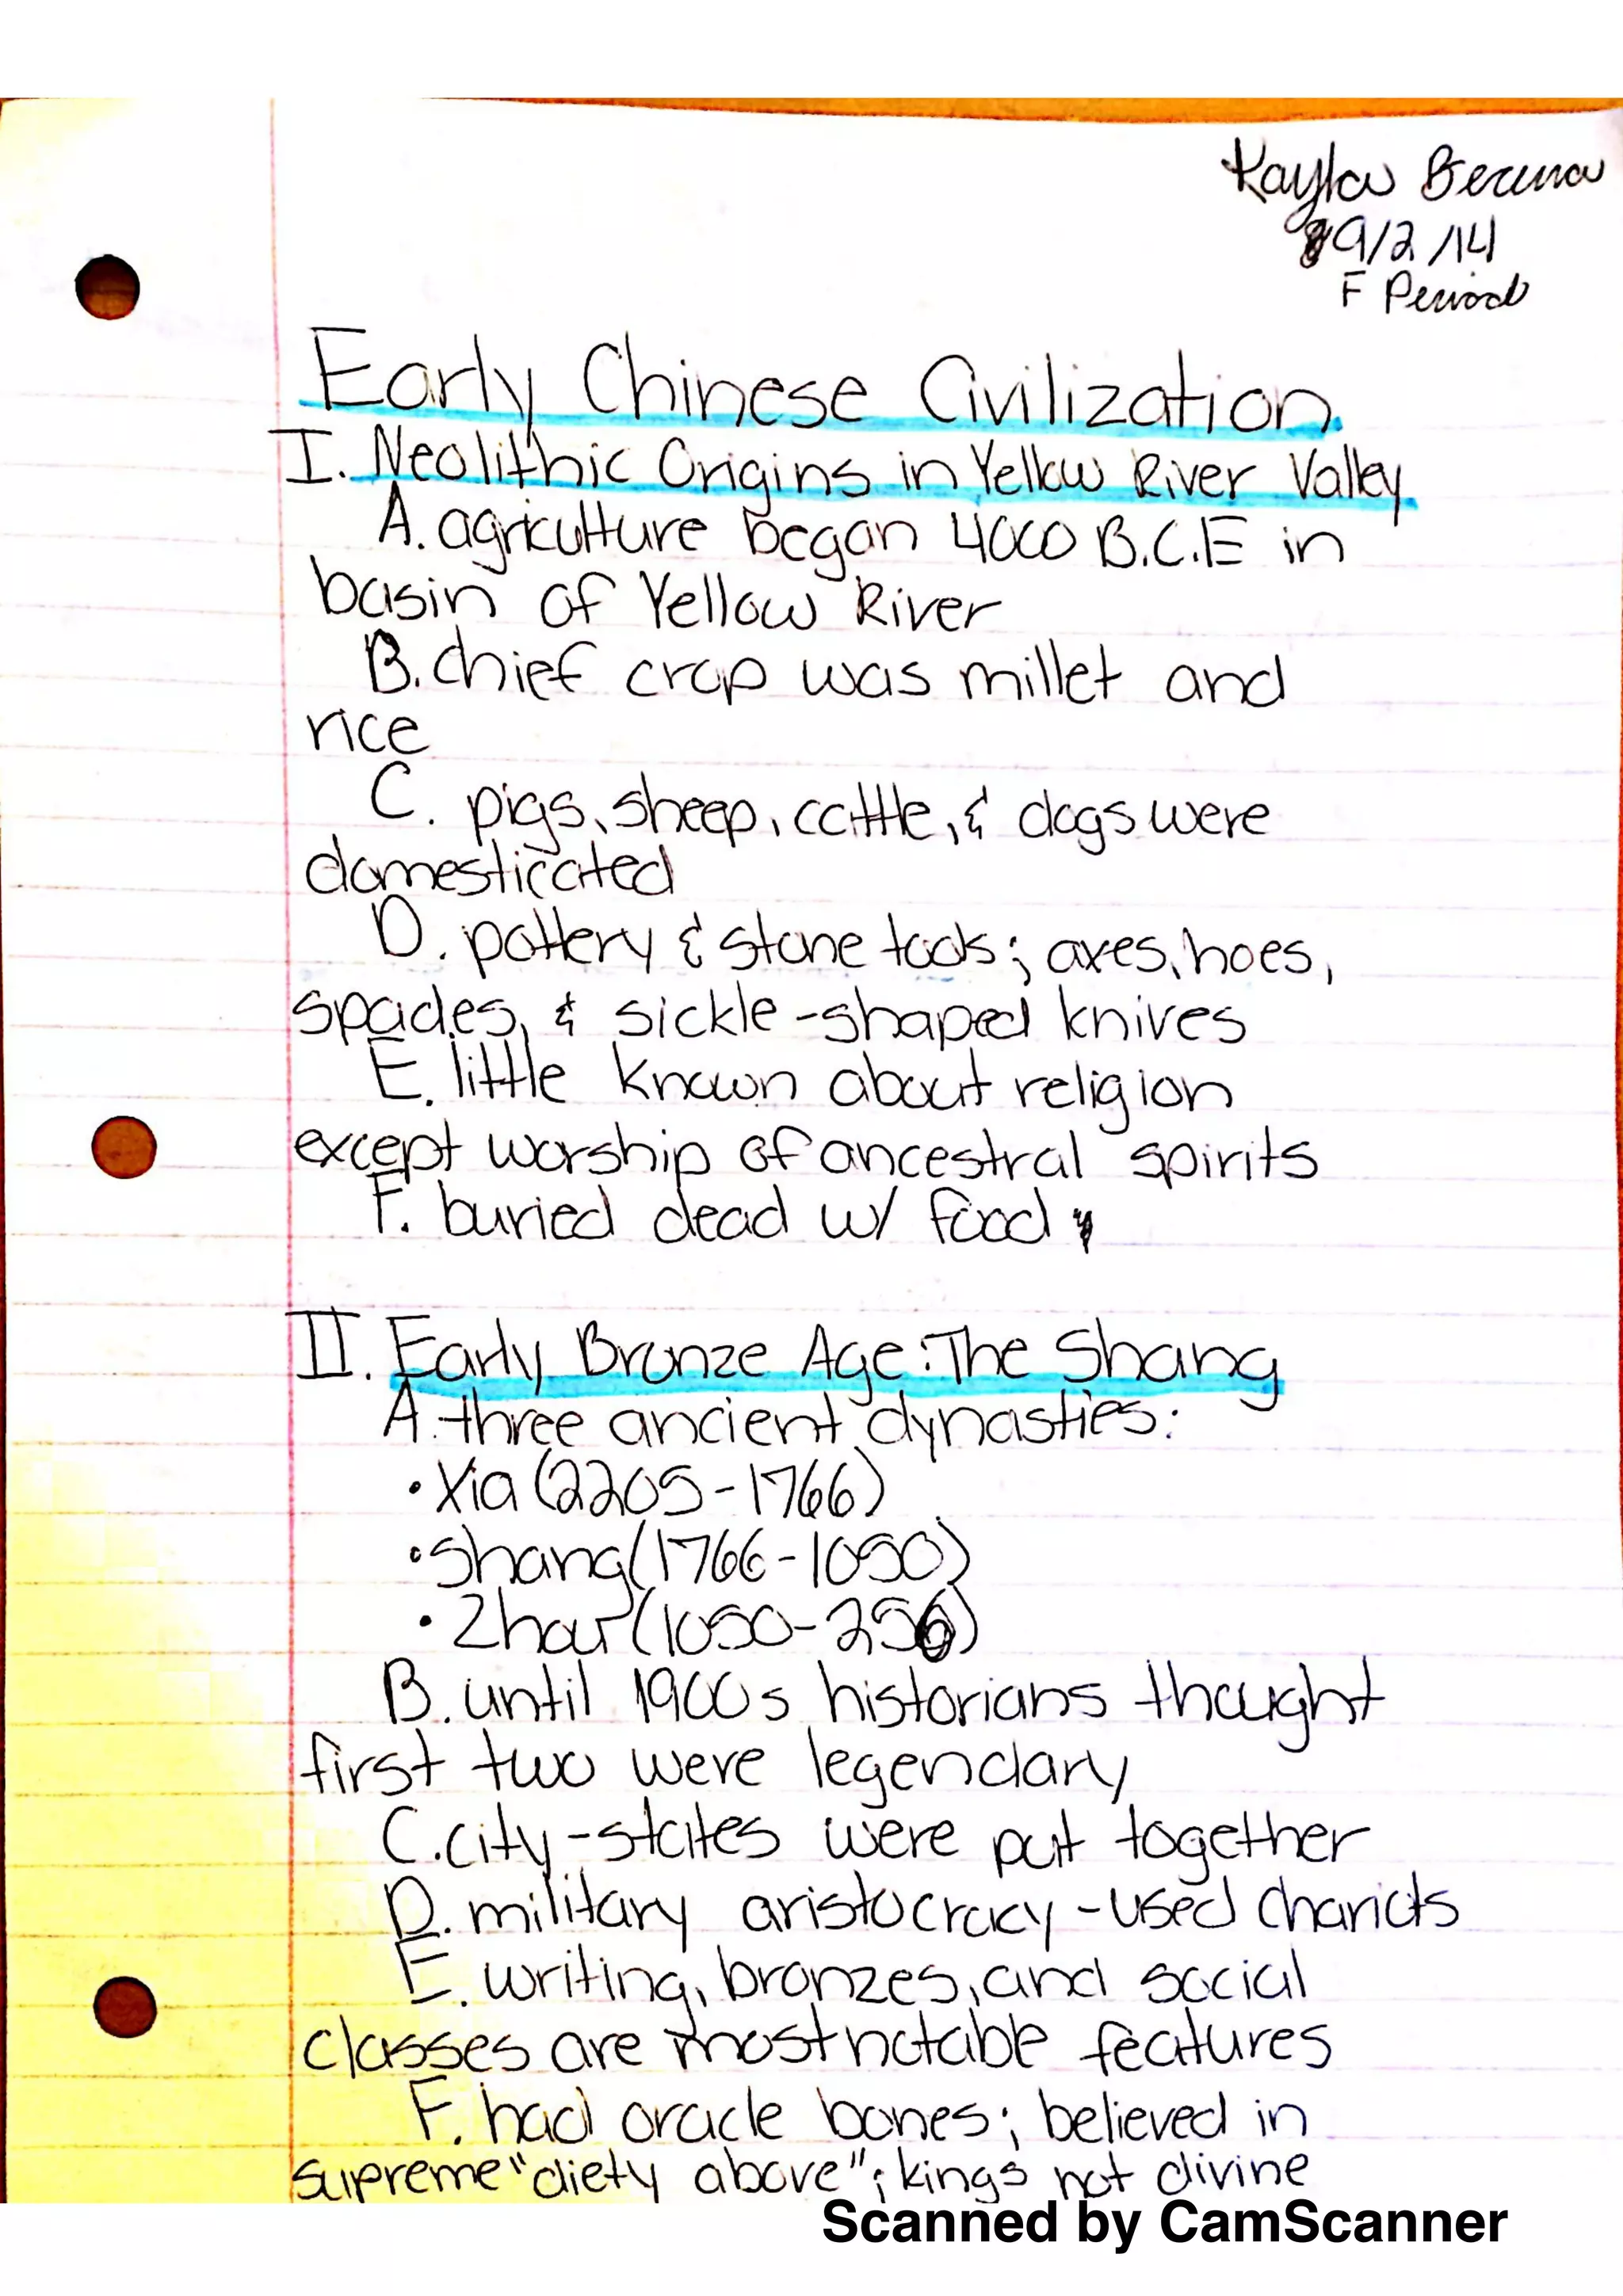 Kayla
9/2/14
F Period
Early Chinese Civilization
I. Neolithic Origins in Yellow River Valley
A. agriculture began 4000 B.C.E in
basin of Yellow River
B. chief crop was millet and
rice
C. pigs, sheep, cattle, & dogs were
domesticated
D. pottery & stone tools; axes, hoes,
spades, & sickle-shaped knives
E. little known about religion
except worship of ancestral spirits
F. buried dead w/ food
II. Early Bronze Age: The Shang
A. three ancient dynasties:
• Xia (2205-1766)
• Shang (1766-1050)
• Zhou (1050-256)
B. until 1900s historians thought
first two were legendary
C. city-states were put together
D. military aristocracy - used chariots
E. writing, bronzes, and social
classes are most notable features
F. had oracle bones; believed in
supreme "diety above"; kings not divine
Scanned by CamScanner